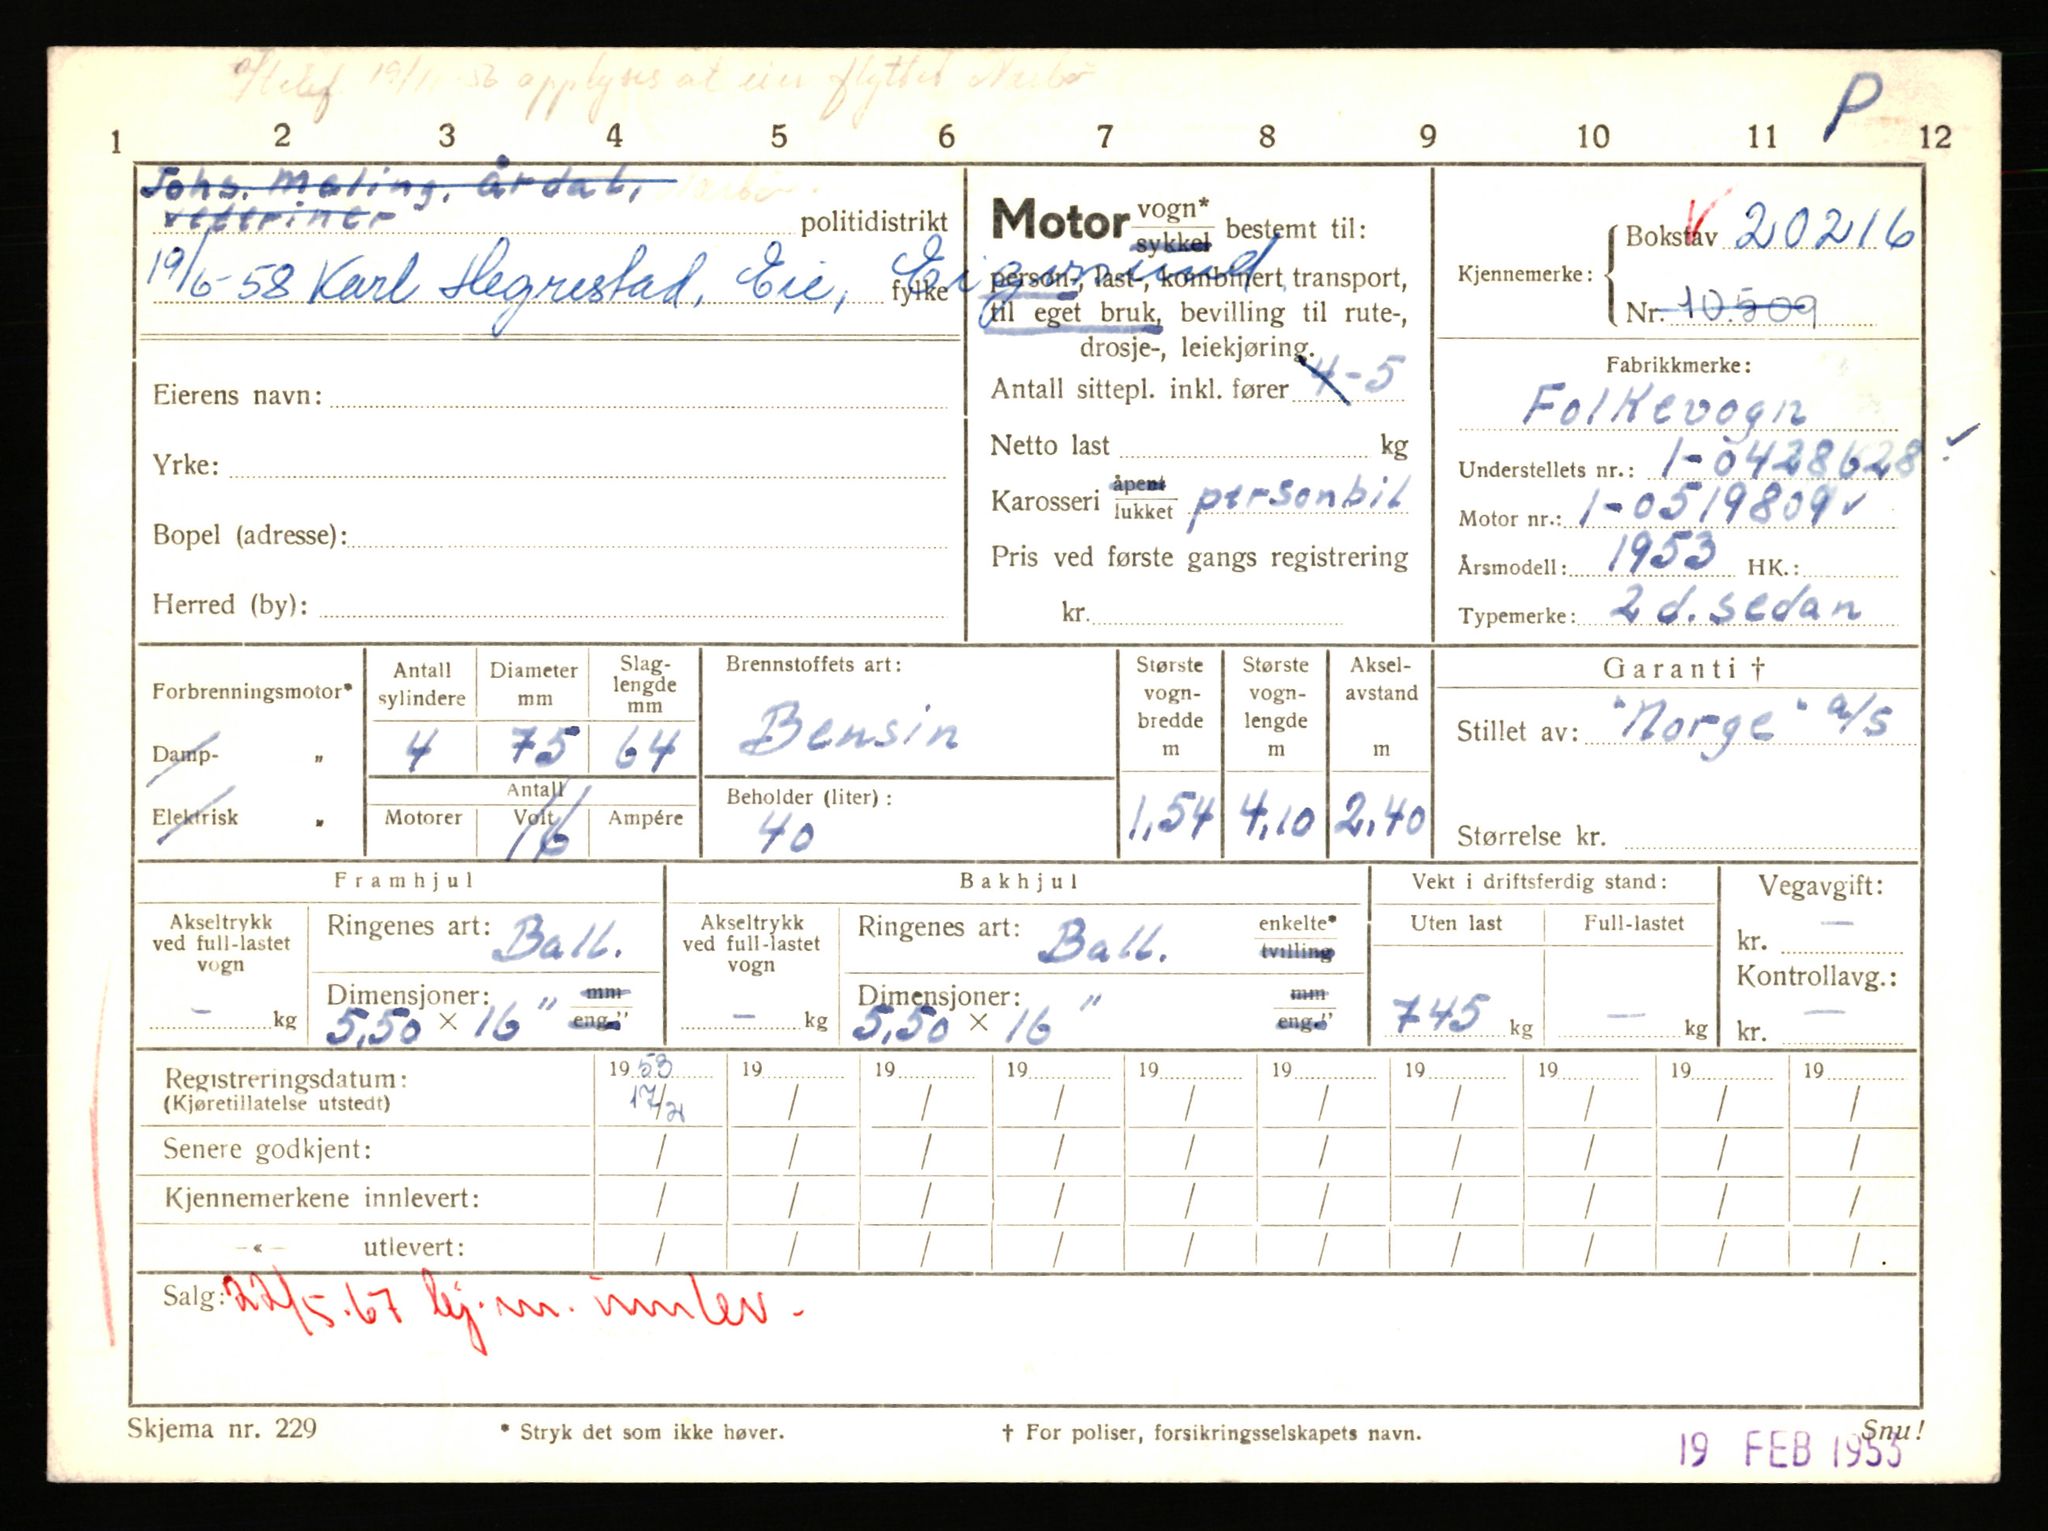 a/ telef. 19/11-56 opplyses at eier flyttet Nærbø
P
1 2 3 4 5 6 7 8 9 10 11 12
Johs. Maling, Årdal, Nærbø.
veterinær
politidistrikt
19/6-58 Karl Hegrestad, Eie, Eigersund
fylke
Eierens navn:
Yrke:
Bopel (adresse):
Herred (by):
Motor vogn* sykkel bestemt til:
person-, last-, kombinert transport,
til eget bruk, bevilling til rute-,
drosje-, leiekjøring.
Antall sittepl. inkl. fører 4-5
Netto last kg
Karosseri åpent lukket personbil
Pris ved første gangs registrering
kr.
Kjennemerke: Bokstav V 20216
Nr. 10.509
Fabrikkmerke:
Folkevogn
Understellets nr.: 1-0428628
Motor nr.: 1-0519809
Årsmodell: 1953 HK.:
Typemerke: 2 d. sedan
Forbrenningsmotor*
Damp- „
Elektrisk „
Antall sylindere
4
Diameter mm
75
Slag-lengde mm
64
Antall
Motorer Volt Ampére
16
Brennstoffets art:
Bensin
Beholder (liter):
40
Største vogn-bredde m
1,54
Største vogn-lengde m
4,10
Aksel-avstand m
2,40
Garanti †
Stillet av: "Norge" a/s
Størrelse kr.
Framhjul
Akseltrykk ved full-lastet vogn
- kg
Ringenes art: Ball.
Dimensjoner: mm
5,50 × 16 " eng."
Bakhjul
Akseltrykk ved full-lastet vogn
- kg
Ringenes art: Ball. enkelte* tvilling
Dimensjoner: mm
5,50 × 16 " eng."
Vekt i driftsferdig stand:
Uten last Full-lastet
745 kg - kg
Vegavgift:
kr. -
Kontrollavg.:
kr. -
Registreringsdatum: 1953 19 19 19 19 19 19 19 19 19
(Kjøretillatelse utstedt) 17/2 / / / / / / / / /
Senere godkjent: / / / / / / / / / /
Kjennemerkene innlevert: / / / / / / / / / /
-«- utlevert: / / / / / / / / / /
Salg: 22/5.67 kj.m. innlev.
Skjema nr. 229
* Stryk det som ikke høver.
† For poliser, forsikringsselskapets navn.
Snu!
19 FEB 1953